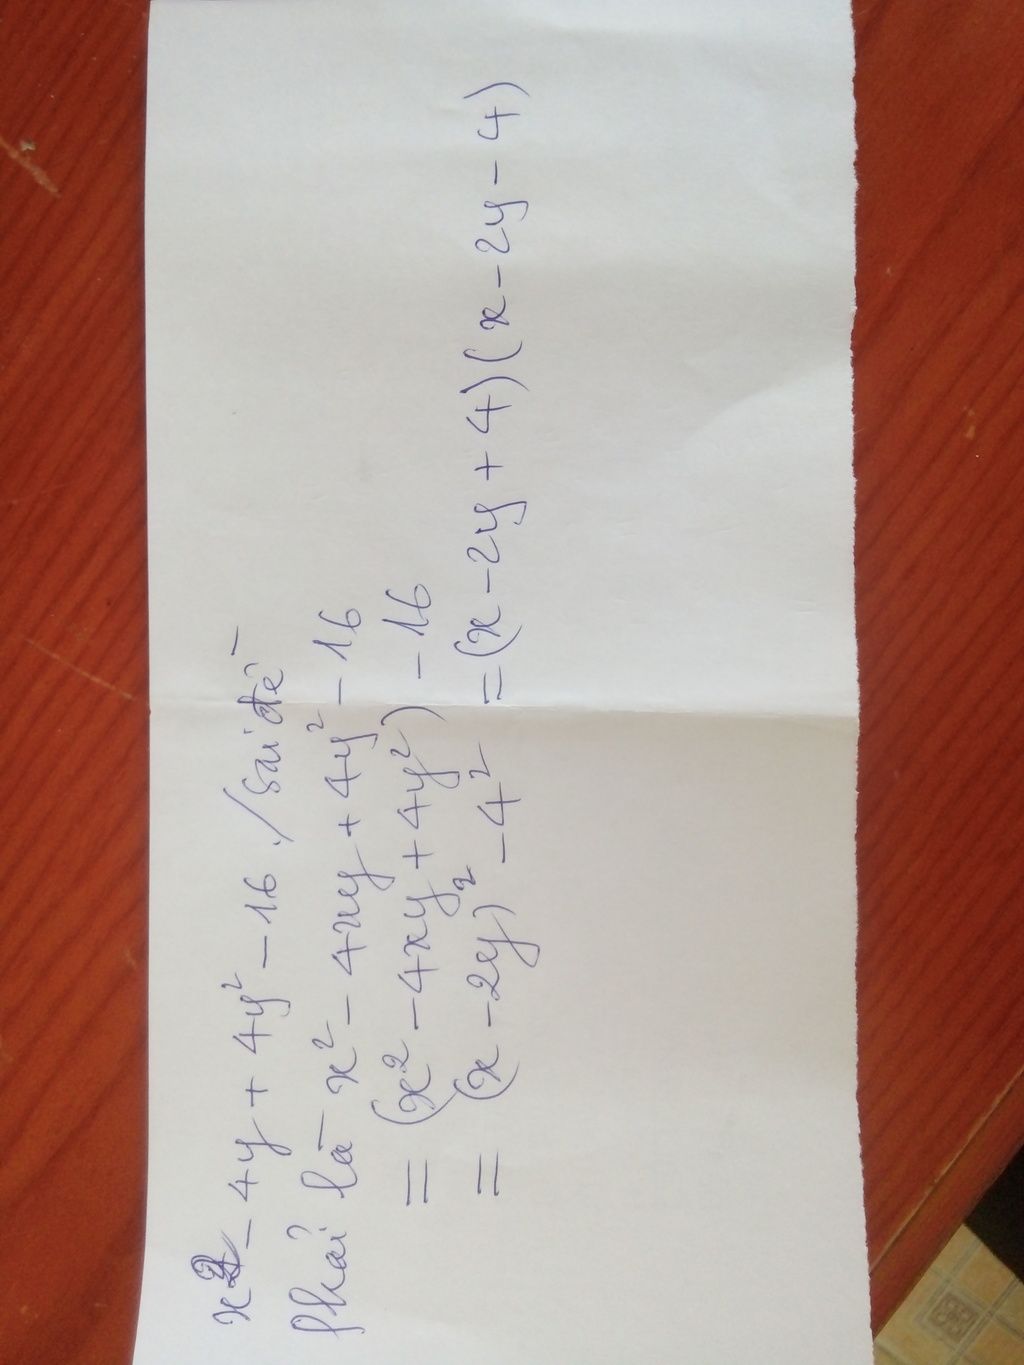 x² - 4y + 4y² - 16 / sai đề
Phải là x² - 4xy + 4y² - 16
= (x² - 4xy + 4y²) - 16
= (x - 2y)² - 4² = (x - 2y + 4)(x - 2y - 4)